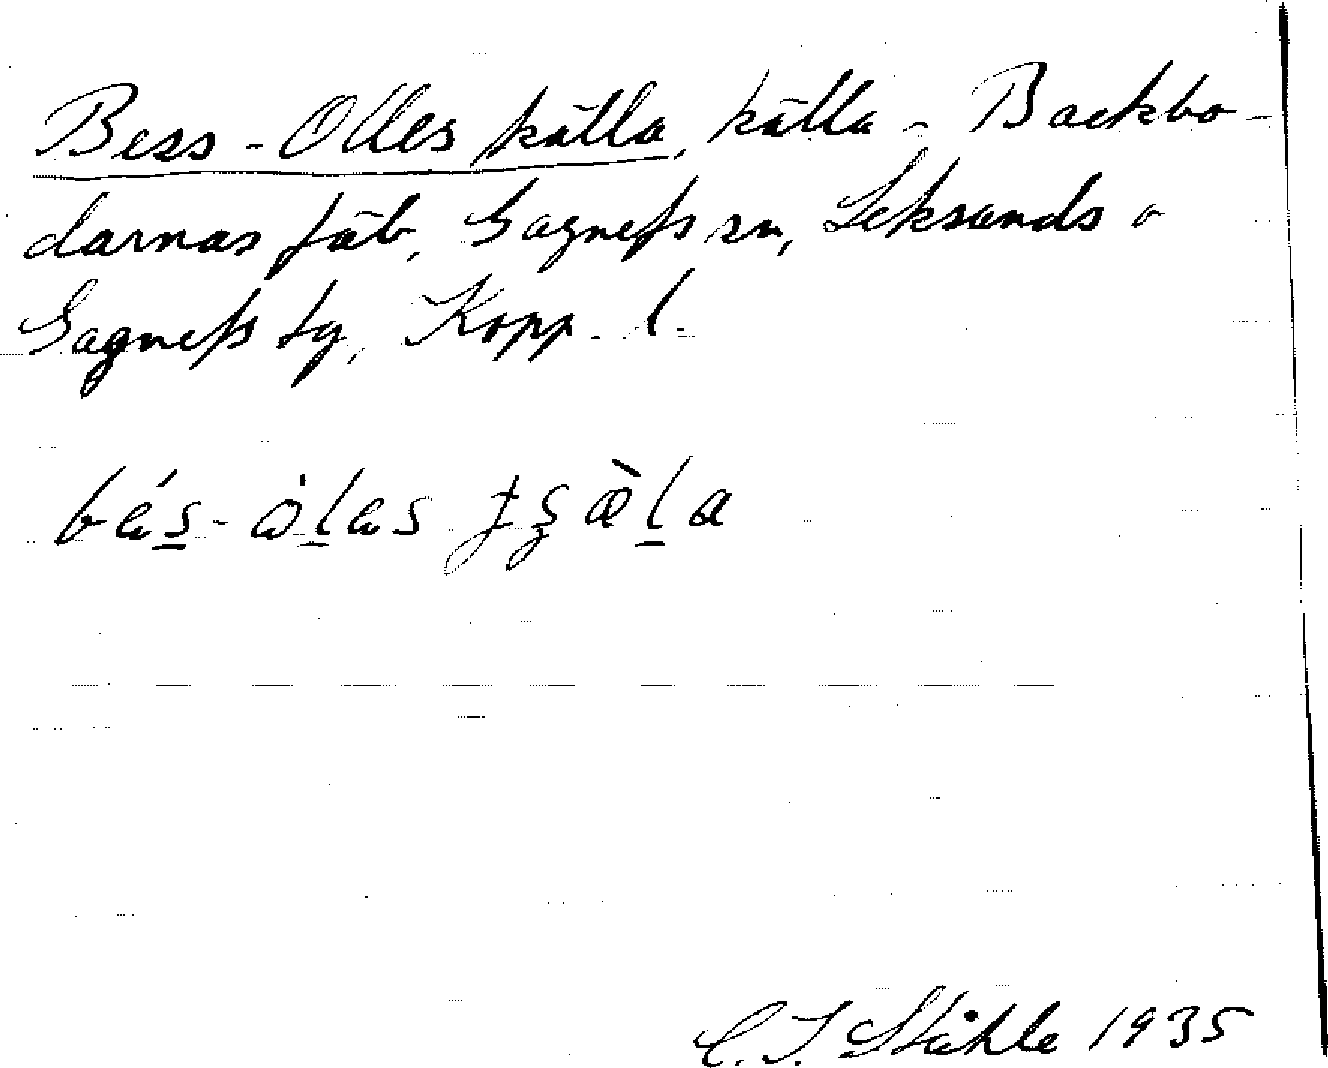 Bess-Olles källa, källa - Backbo-
darnas fäb, Gagnefs sn, Leksands o
Gagnefs tg, Kopp. l.
C. I. Ståhle 1935